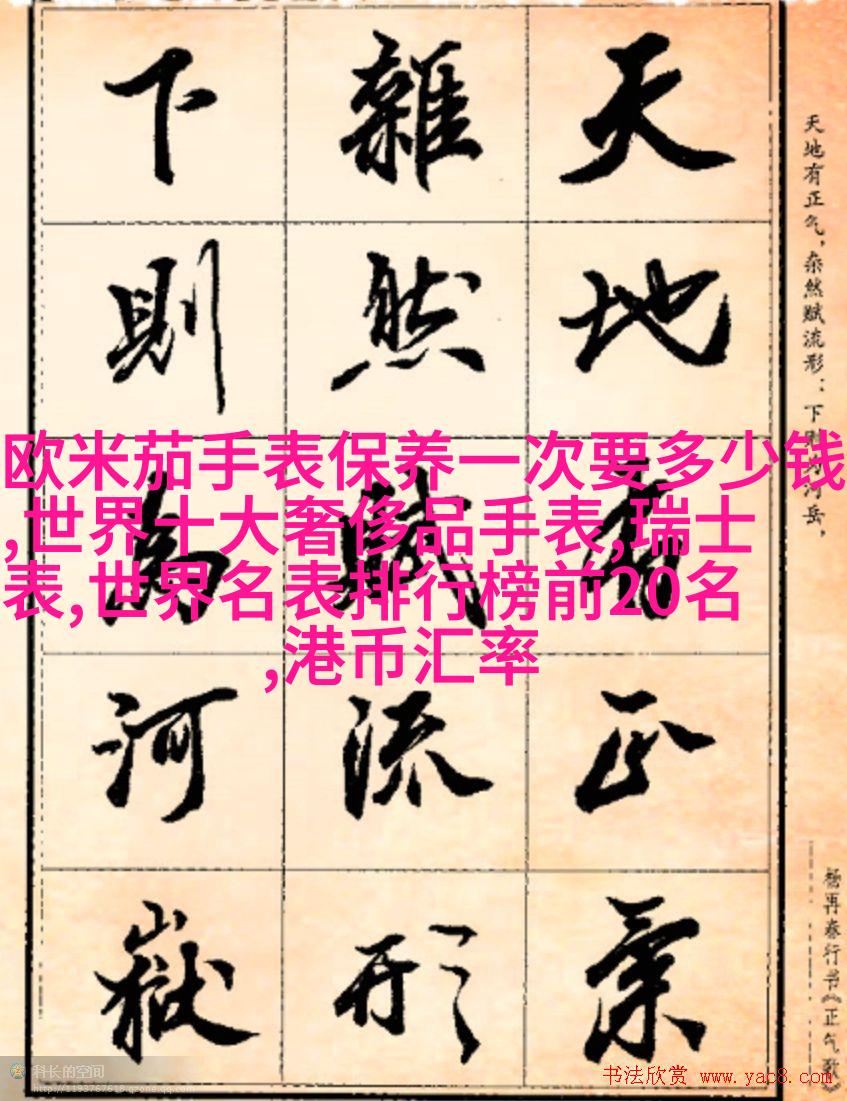 天地有正氣
雜然賦流形
下則為河嶽
天地有正气，杂然赋流形：下则为河岳，
杨再春行书《正气歌》
欧米茄手表保养一次要多少钱
,世界十大奢侈品手表,瑞士
表,世界名表排行榜前20名
,港币汇率
科长的空间
http://1193767618.qzone.qq.com
书法欣赏 www.yac8.com